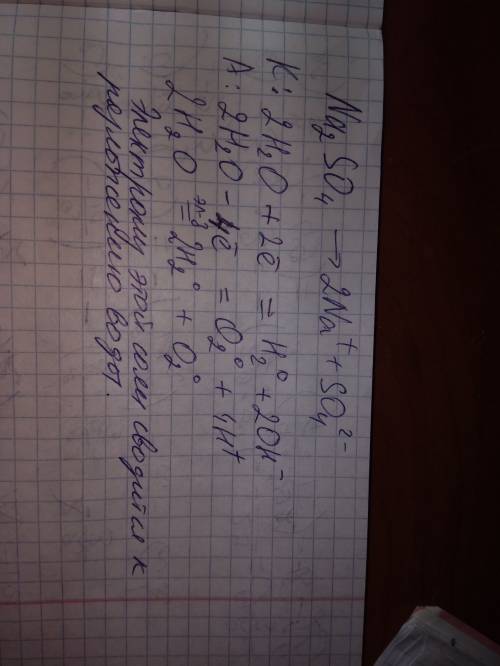 Na₂SO₄ → 2Na⁺ + SO₄²⁻
К: 2H₂O + 2ē = H₂⁰ + 2OH⁻
А: 2H₂O - 4ē = O₂⁰ + 4H⁺
2H₂O эл-з = 2H₂⁰ + O₂⁰
Электролиз этой соли сводится к
разложению воды.